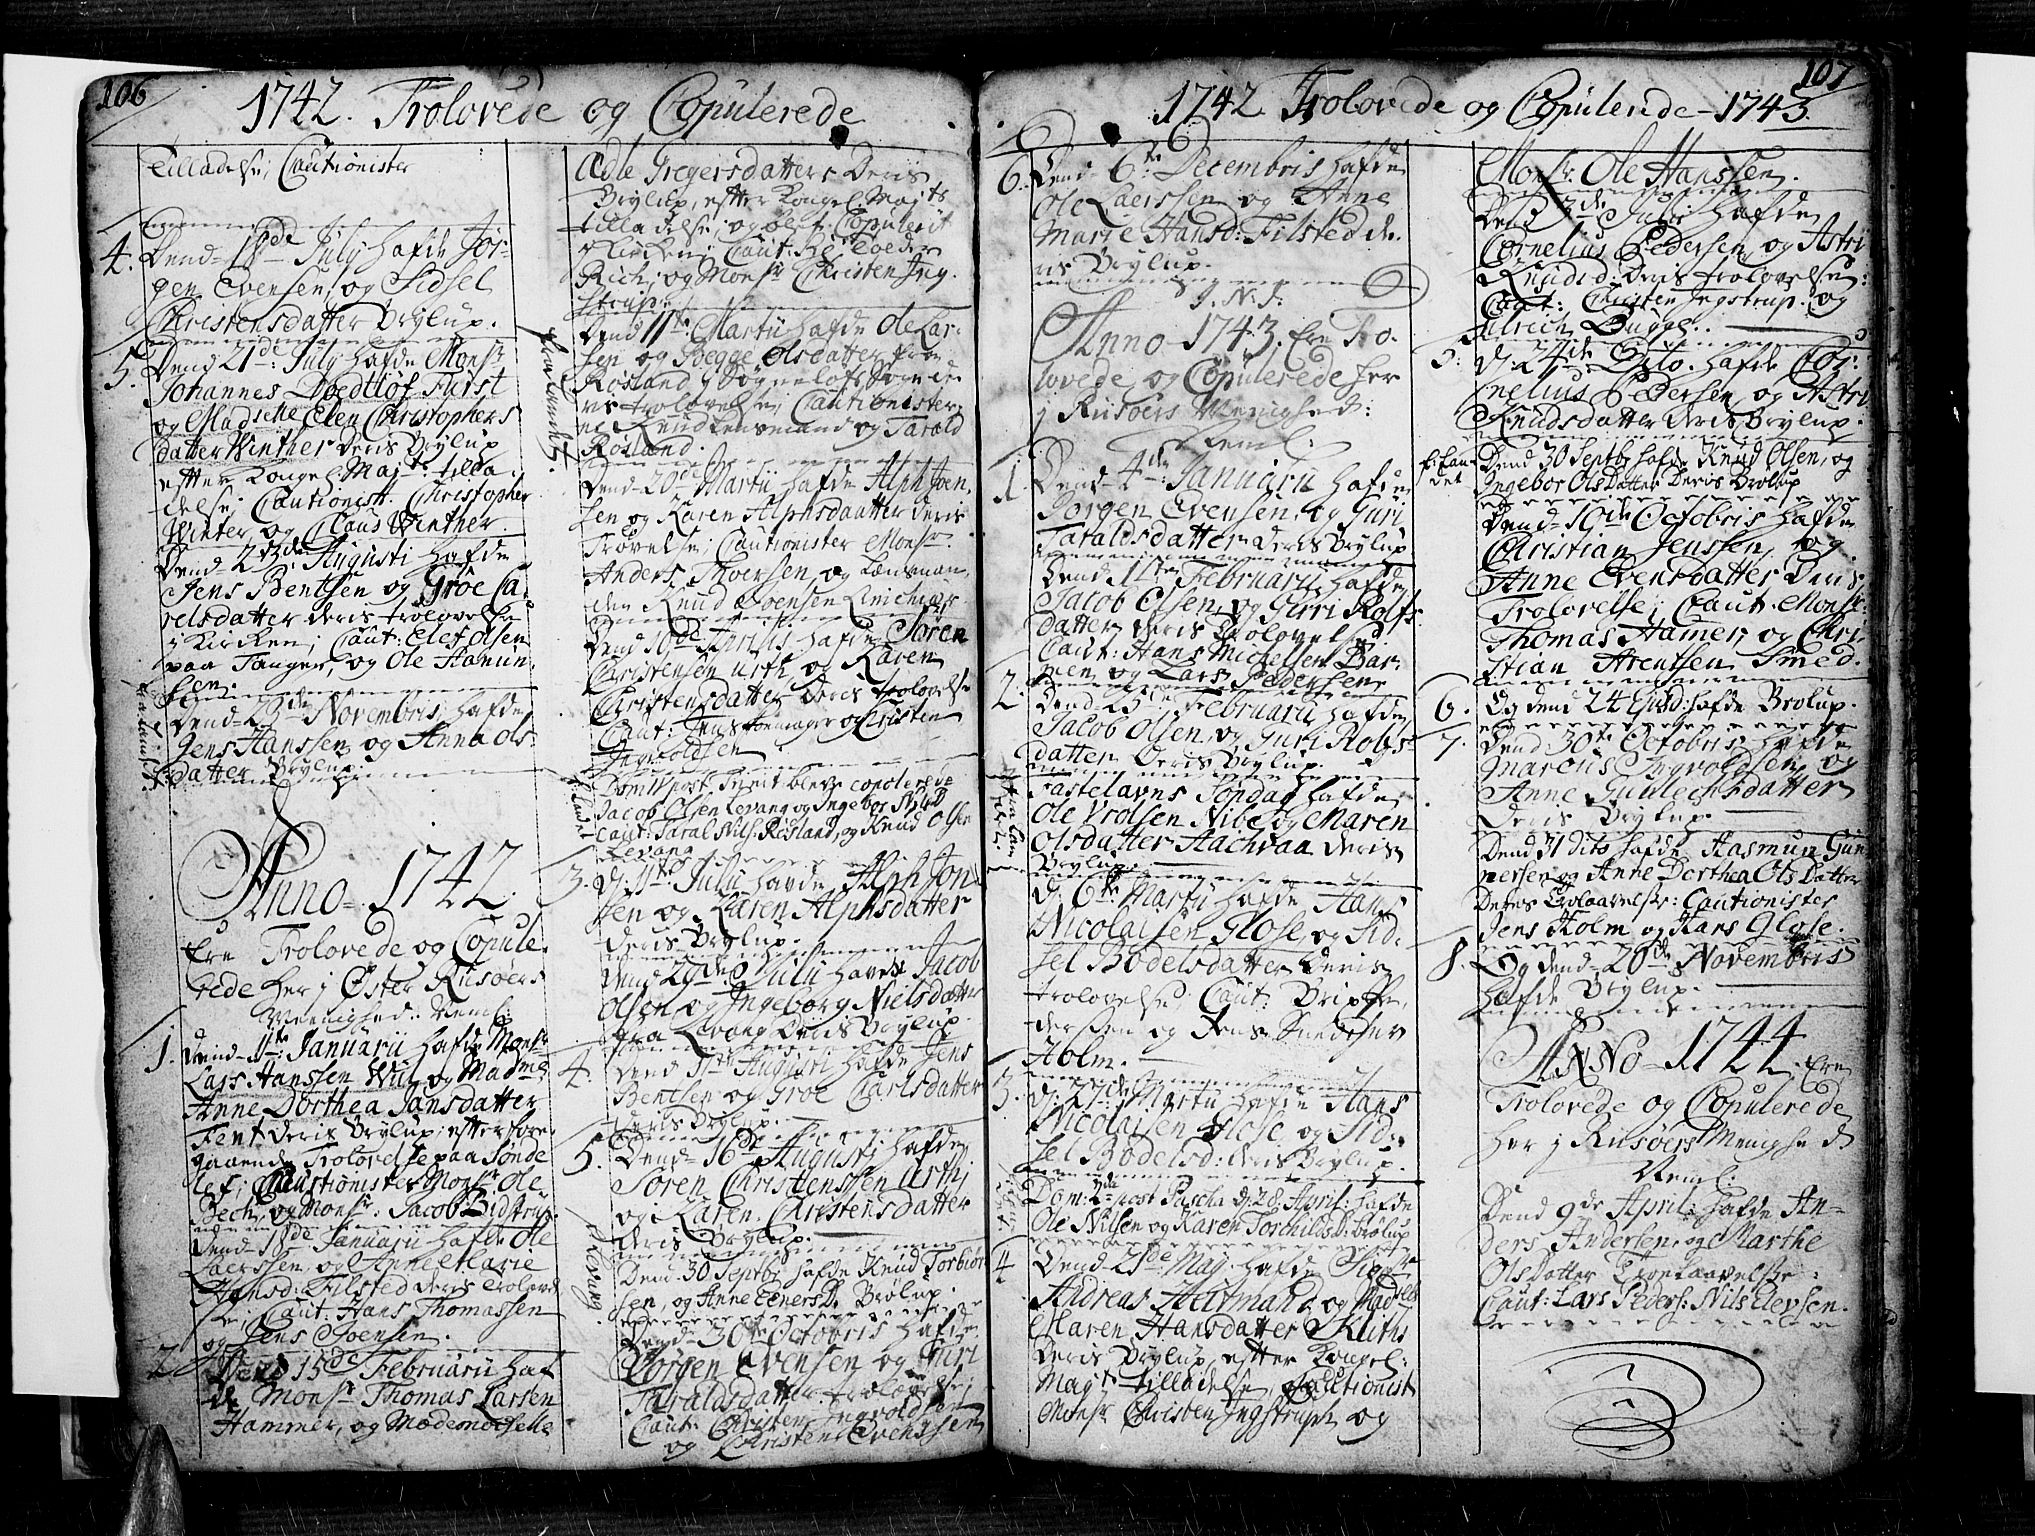 106
1742. Trolovede og Copulerede
Tilladelse; Cautionister
4. Dend 18de July hafde Jør-
gen Evensen, og Sidsel
Christensdatter Brylup.
5. Dend 21de July hafde Monsr
Johannes Fürst
og Madselle Elen Christophers
datter Winther deris Brylup
efter Kongel: Majts: tilla-
delse; Cautionist: Christopher
Winter, og Claus Winther.
Dend 23de Augusti hafde
Jens Bentsen og Groe Ca-
relsdatter deris trolovelse
j Kirken; Caut: Elef Olsen
paa Tangen, og Ole Hamun-
sen.
Dend 29de Novembris hafde
Jens Hanssen og Anna Ols-
datter Brylup.
Anno 1742.
Ere Trolovede og Copule-
rede her j Øster Riisøers
Meenighed. Neml:
1. Dend 11te Januarii hafde Monsr
Lars Hanssen Wiil og Madme
Anne Dorthea Jansdatter
Fent deris Brylup; efter fore-
gaaende Trolovelse paa Sönde-
lef; Cautionister Monsr Ole
Bech, og Monsr. Jacob Bidstrup.
Dend 18de Januarii hafde Ole
Laerssen, og Anne Marie
Hansd: Filsted deris trolovel-
se; Caut: Hans Thomassen
og Jens Joensen.
2. Dend 15de Februarii haf-
de Monsr Thomas Larsen
Hammer, og Mademoiselle
Adle Gregersdatter Deris
Brylup, efter Kongel. Majts
tilladelse; og blef Copulerit
j Kirken; Caut:
Rich; og Monsr Christen Ing-
strup.
fra Landet.
Dend 11te Martii hafde Ole Lar-
sen og Segge Olsdatter fra
Røsland j Sögnelofs Sogn de-
ris trolovelse; Cautionister
ere Knud Lensmand og Tarald
Røsland.
Dend 20de Martii hafde Alph Joen-
sen og Karen Alphsdaatter deris
Trovelse; Cautionister Monsr.
Anders Thoersen, og Lensman-
den Knud Joensen
Dend 16de Aprilis hafde Sören
Christensen Urth, og Karen
Christensdatter Deris trolovelse
Caut: Jens og Christen
Ingvoldsen
Dom: V post Trinit bleve copulerede
Jacob Olsen Levang og Ingebor NielsD
caut: Taral Nils: Røsland, og Knud Olsen
Levang
3. D: 11te Julii havde Alph Jon-
sen og Karen Alphsdatter
Deris Brylup.
Dend 29de Julii havde Jacob
Olsen og Ingeborg Nielsdatter
fra Levang Deris Brylup.
4. Dend 3te Augusti hafde Jens
Bentsen og Groe Carlsdatter
deris Brylup.
5. Dend 16de Augusti hafde
Sören Christenssen Urth;
og Karen Christensdatter
Deris Brylup.
Levang
Dend 30 Septbr hafde Knud Torbiør-
sen, og Anne EinersD. Brølup.
Dend 30te Octobris hafde
Jørgen Evensen og Guri
Taraldsdatter trolovelse;
Caut: Christen Ingvoldsen
og Christen Evenssen
107
1742 Trolovede og Copulerede 1743.
6. Dend 6te Decembris hafde
Ole Laerssen og Anne
Marie Hansd: Filsted de-
ris Brylup.
J. N. J.
Anno 1743. Ere Tro-
lovede og Copulerede her
j Riisøers Menighed:
Neml:
1. Dend 4de Januarii hafde
Jørgen Evensen, og Guri
Taraldsdatter Deris Brylup
Dend 11te Februarii hafde
Jacob Olsen, og Gurri Rolfs-
datter deris trolovelse
Caut: Hans Michelsen Bar-
men og Lars Pedersen.
2. Dend 25de Februarii hafde
Jacob Olsen, og Guri Rolfs-
datter Deris Brylup.
Fastelavns Söndag hafde
Ole Vrolsen Nibe og Maren
Olsdatter Aachvaa Deris
Brylup.
D. 6te Martii hafde Hans
Nicolaisen Glose, og Sid-
sel Bodelsdatter Deris
trolovelse; Caut:
og Jens
Holm.
3. D: 27de Martii hafde Hans
Nicolaisen Glose, og Sid-
sel Bodelsd: deris Brylup.
Dom: 2da post Pascha d. 28 April: hafde
Ole Nilsen og Karen TorchildsD: Brølup
4 Dend 21de Maj hafde Sigr
Andreas Hartmand, og Madselle
Maren Hansdatter Kliths
Deris Brylup, efter Kongel:
Majts tilladelse, Cautionist
Monsr Christen Ingstrup og
Monsr. Ole Hanssen.
Dend 3de Julii hafde
Cornelius Pedersen og Astri
Knudsd: Deris trolovelse;
Caut: Christen Ingstrup og
Ulrich Bugge.
5. D. 24de Dito hafde Cor-
nelius Pedersen, og Astri
Knudsdatter deris Brylup.
fr: Lan-
det
Dend 30 Septbr hafde Knud Olsen, og
Ingebor OlsDatter Deris Brølup
Dend 10de Octobris hafde
Christian Jenssen, og
Anne Evensdatter Deris
Trolovelse; Caut. Monsr.
Thomas Hamer, og Chri-
stian Arentsen Smed.
6. Og dend 24 hafde Brølup.
7. Dend 30te Octobris hafde
Marcus Ingvoldsen, og
Anne Gunlechsdatter
Deris Brylup.
Dend 31 dito hafde Aasmun Gun-
nersen og Anne Dorthea OlsDatter
Deres Trolaavelse: Cautionister
Jens Holm og Hans Glose.
8. Og dend 20de Novembris
hafde Brylup.
ANNO 1744. Ere
Trolovede og Copulerede
her j Riisøers Menighed
Neml:
Dend 9de April: hafde An-
ders Andersen, og Marthe
OlsDatter Troelaavelse:
Caut: Lars Peders: Nils Elevsen.